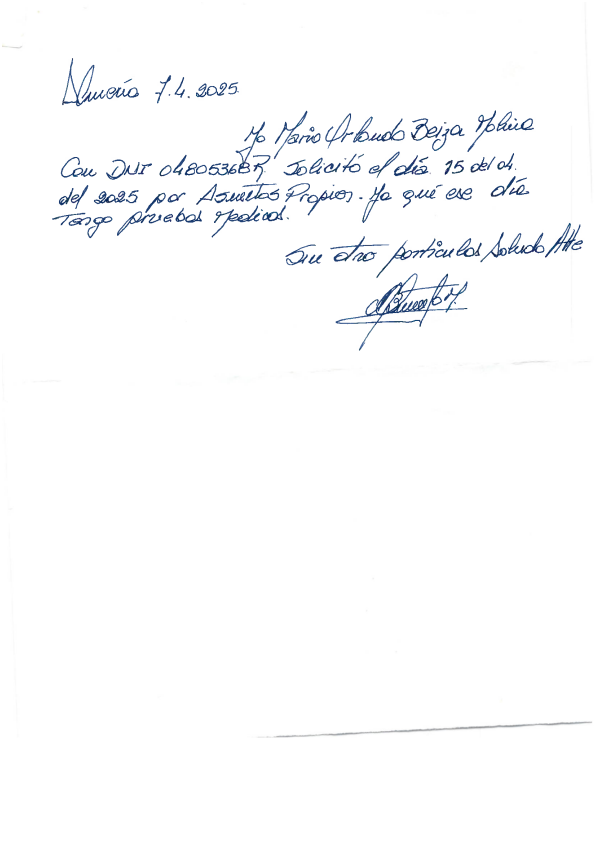 Almería 7.4.2025
Yo Mario Orlando Beiza Molina
Con DNI 04805368R Solicitó el día 15 del 04.
del 2025 por Asuntos Propios. Ya qué ese día
Tengo pruebas Medicas.
Sin otro particular Saludo Atte